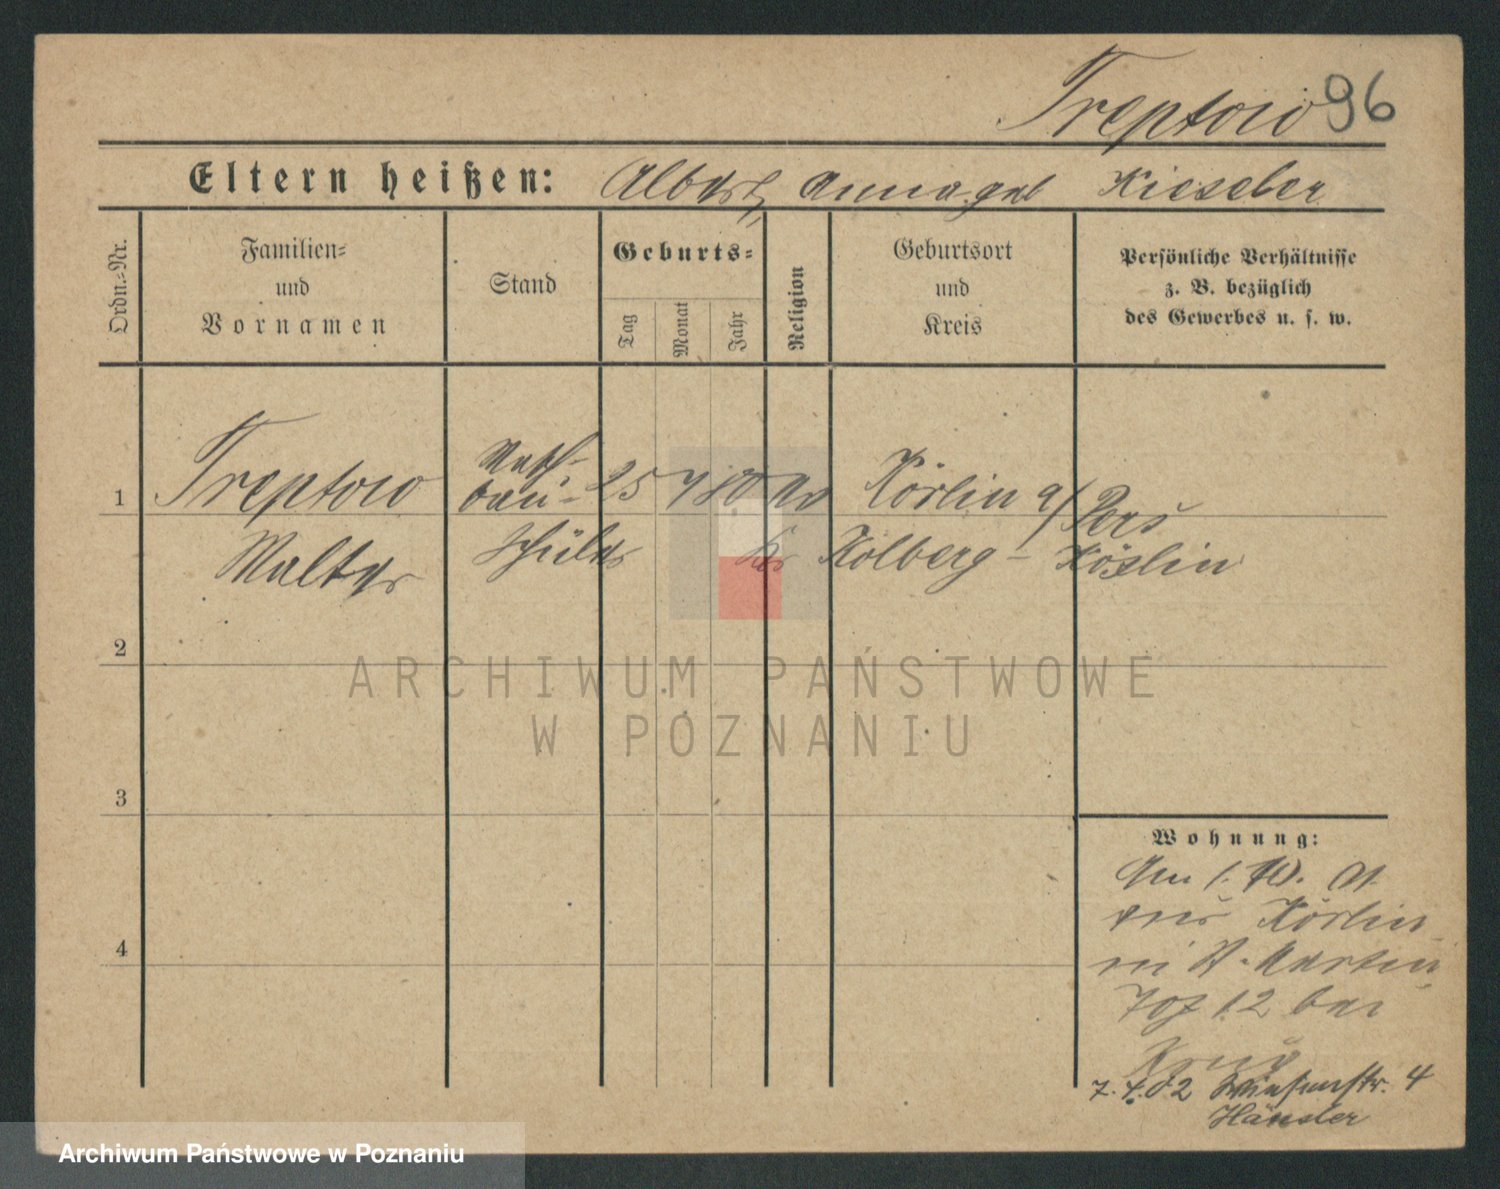 Treptow 96
Eltern heißen: Albert, Anna geb Kieseler
Ordn.=Nr.
Familien=
und
Vornamen
Stand
Geburts=
Tag
Monat
Jahr
Religion
Geburtsort
und
Kreis
Persönliche Verhältnisse
z. B. bezüglich
des Gewerbes u. s. w.
1 Treptow
Walter
bau=
schüler
25 7 80 ev
Körlin a/Pers
Krs Kolberg - Köslin
2
3
4
Wohnung:
Am 1. 10. 01
von Körlin
St. Martin
12 bei
Krug
7. 4. 02 Wiesenstr. 4
Hänsler
ARCHIWUM PAŃSTWOWE
W POZNANIU
Archiwum Państwowe w Poznaniu